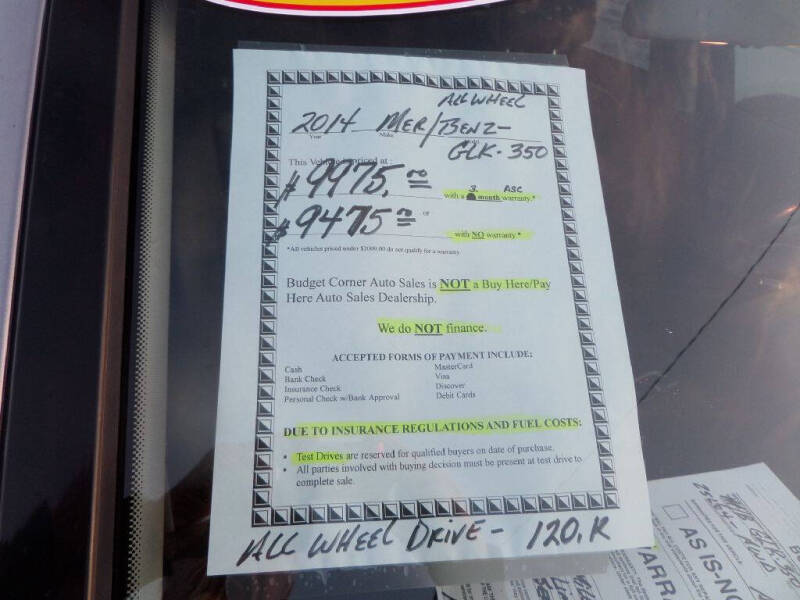 ALL WHEEL
2014 MER/BENZ-
Year Make
GLK-350
This Vehicle is priced at:
$9975.00 with a 3 month warranty.*
ASC
or
$9475 with NO warranty.*
*All vehicles priced under $2000.00 do not qualify for a warranty.
Budget Corner Auto Sales is NOT a Buy Here/Pay
Here Auto Sales Dealership.
We do NOT finance.
ACCEPTED FORMS OF PAYMENT INCLUDE:
Cash MasterCard
Bank Check Visa
Insurance Check Discover
Personal Check w/Bank Approval Debit Cards
DUE TO INSURANCE REGULATIONS AND FUEL COSTS:
• Test Drives are reserved for qualified buyers on date of purchase.
• All parties involved with buying decision must be present at test drive to
complete sale.
ALL WHEEL DRIVE - 120.K
AS IS-NO
WARR